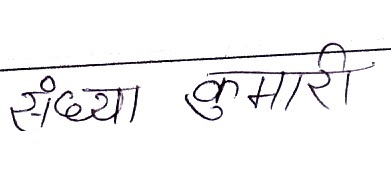 संध्या कुमारी